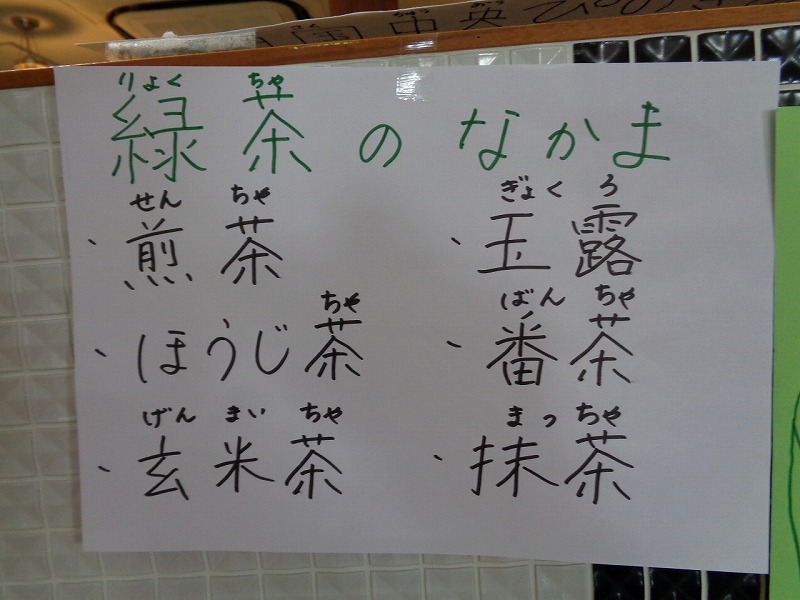 りょく ちゃ
緑茶のなかま
せん ちゃ ぎょく ろ
・煎茶 ・玉露
ちゃ ばん ちゃ
・ほうじ茶 ・番茶
げん まい ちゃ まっ ちゃ
・玄米茶 ・抹茶